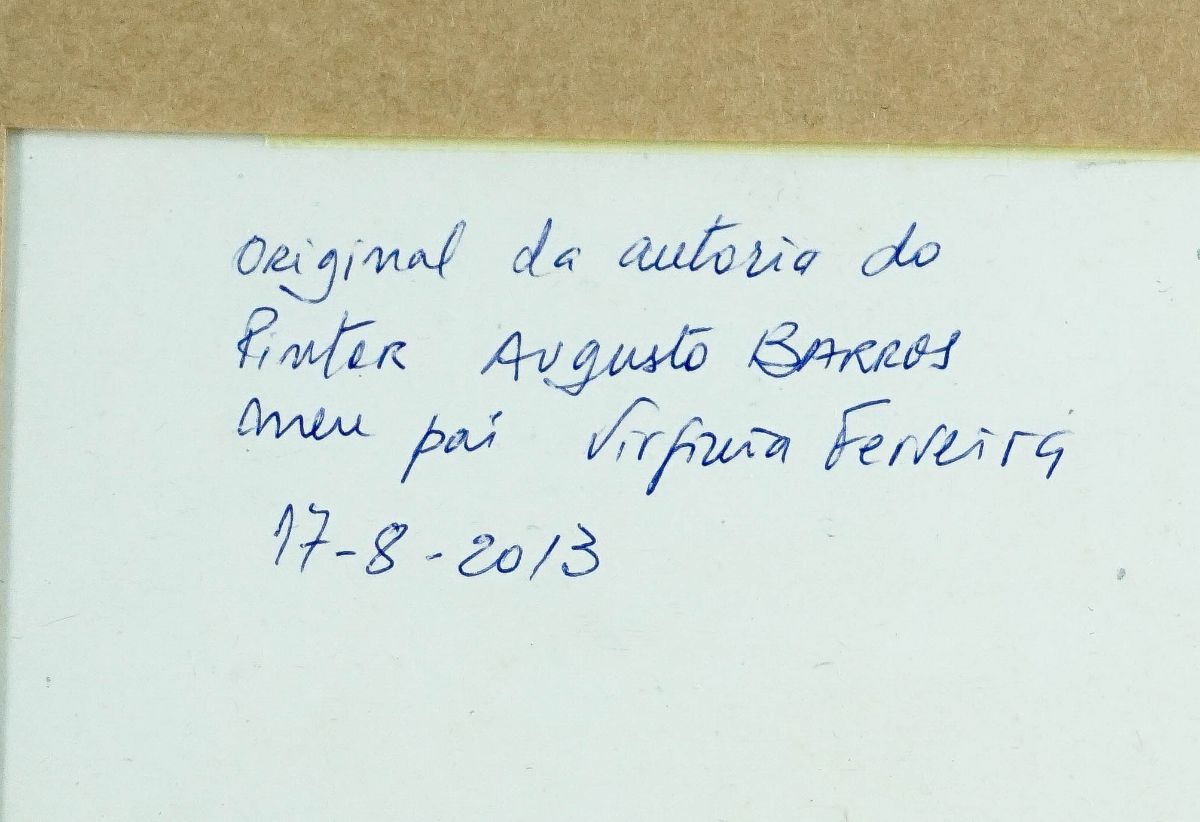 original da autoria do
Pintor Augusto BARROS
meu pai Virginia Ferreira
17-8-2013